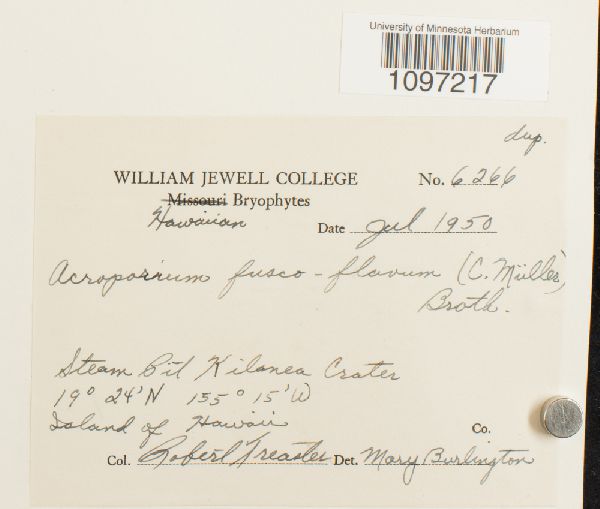 University of Minnesota Herbarium
1097217
dup.
WILLIAM JEWELL COLLEGE No. 6266
Missouri Bryophytes
Hawaiian
Date Jul 1950
Acroporium fusco-flavum (C. Müller)
Broth.
Steam Pit Kilauea Crater
19° 24'N 155° 15'W
Island of Hawaii
Co.
Col. Robert Treaster Det. Mary Burlington